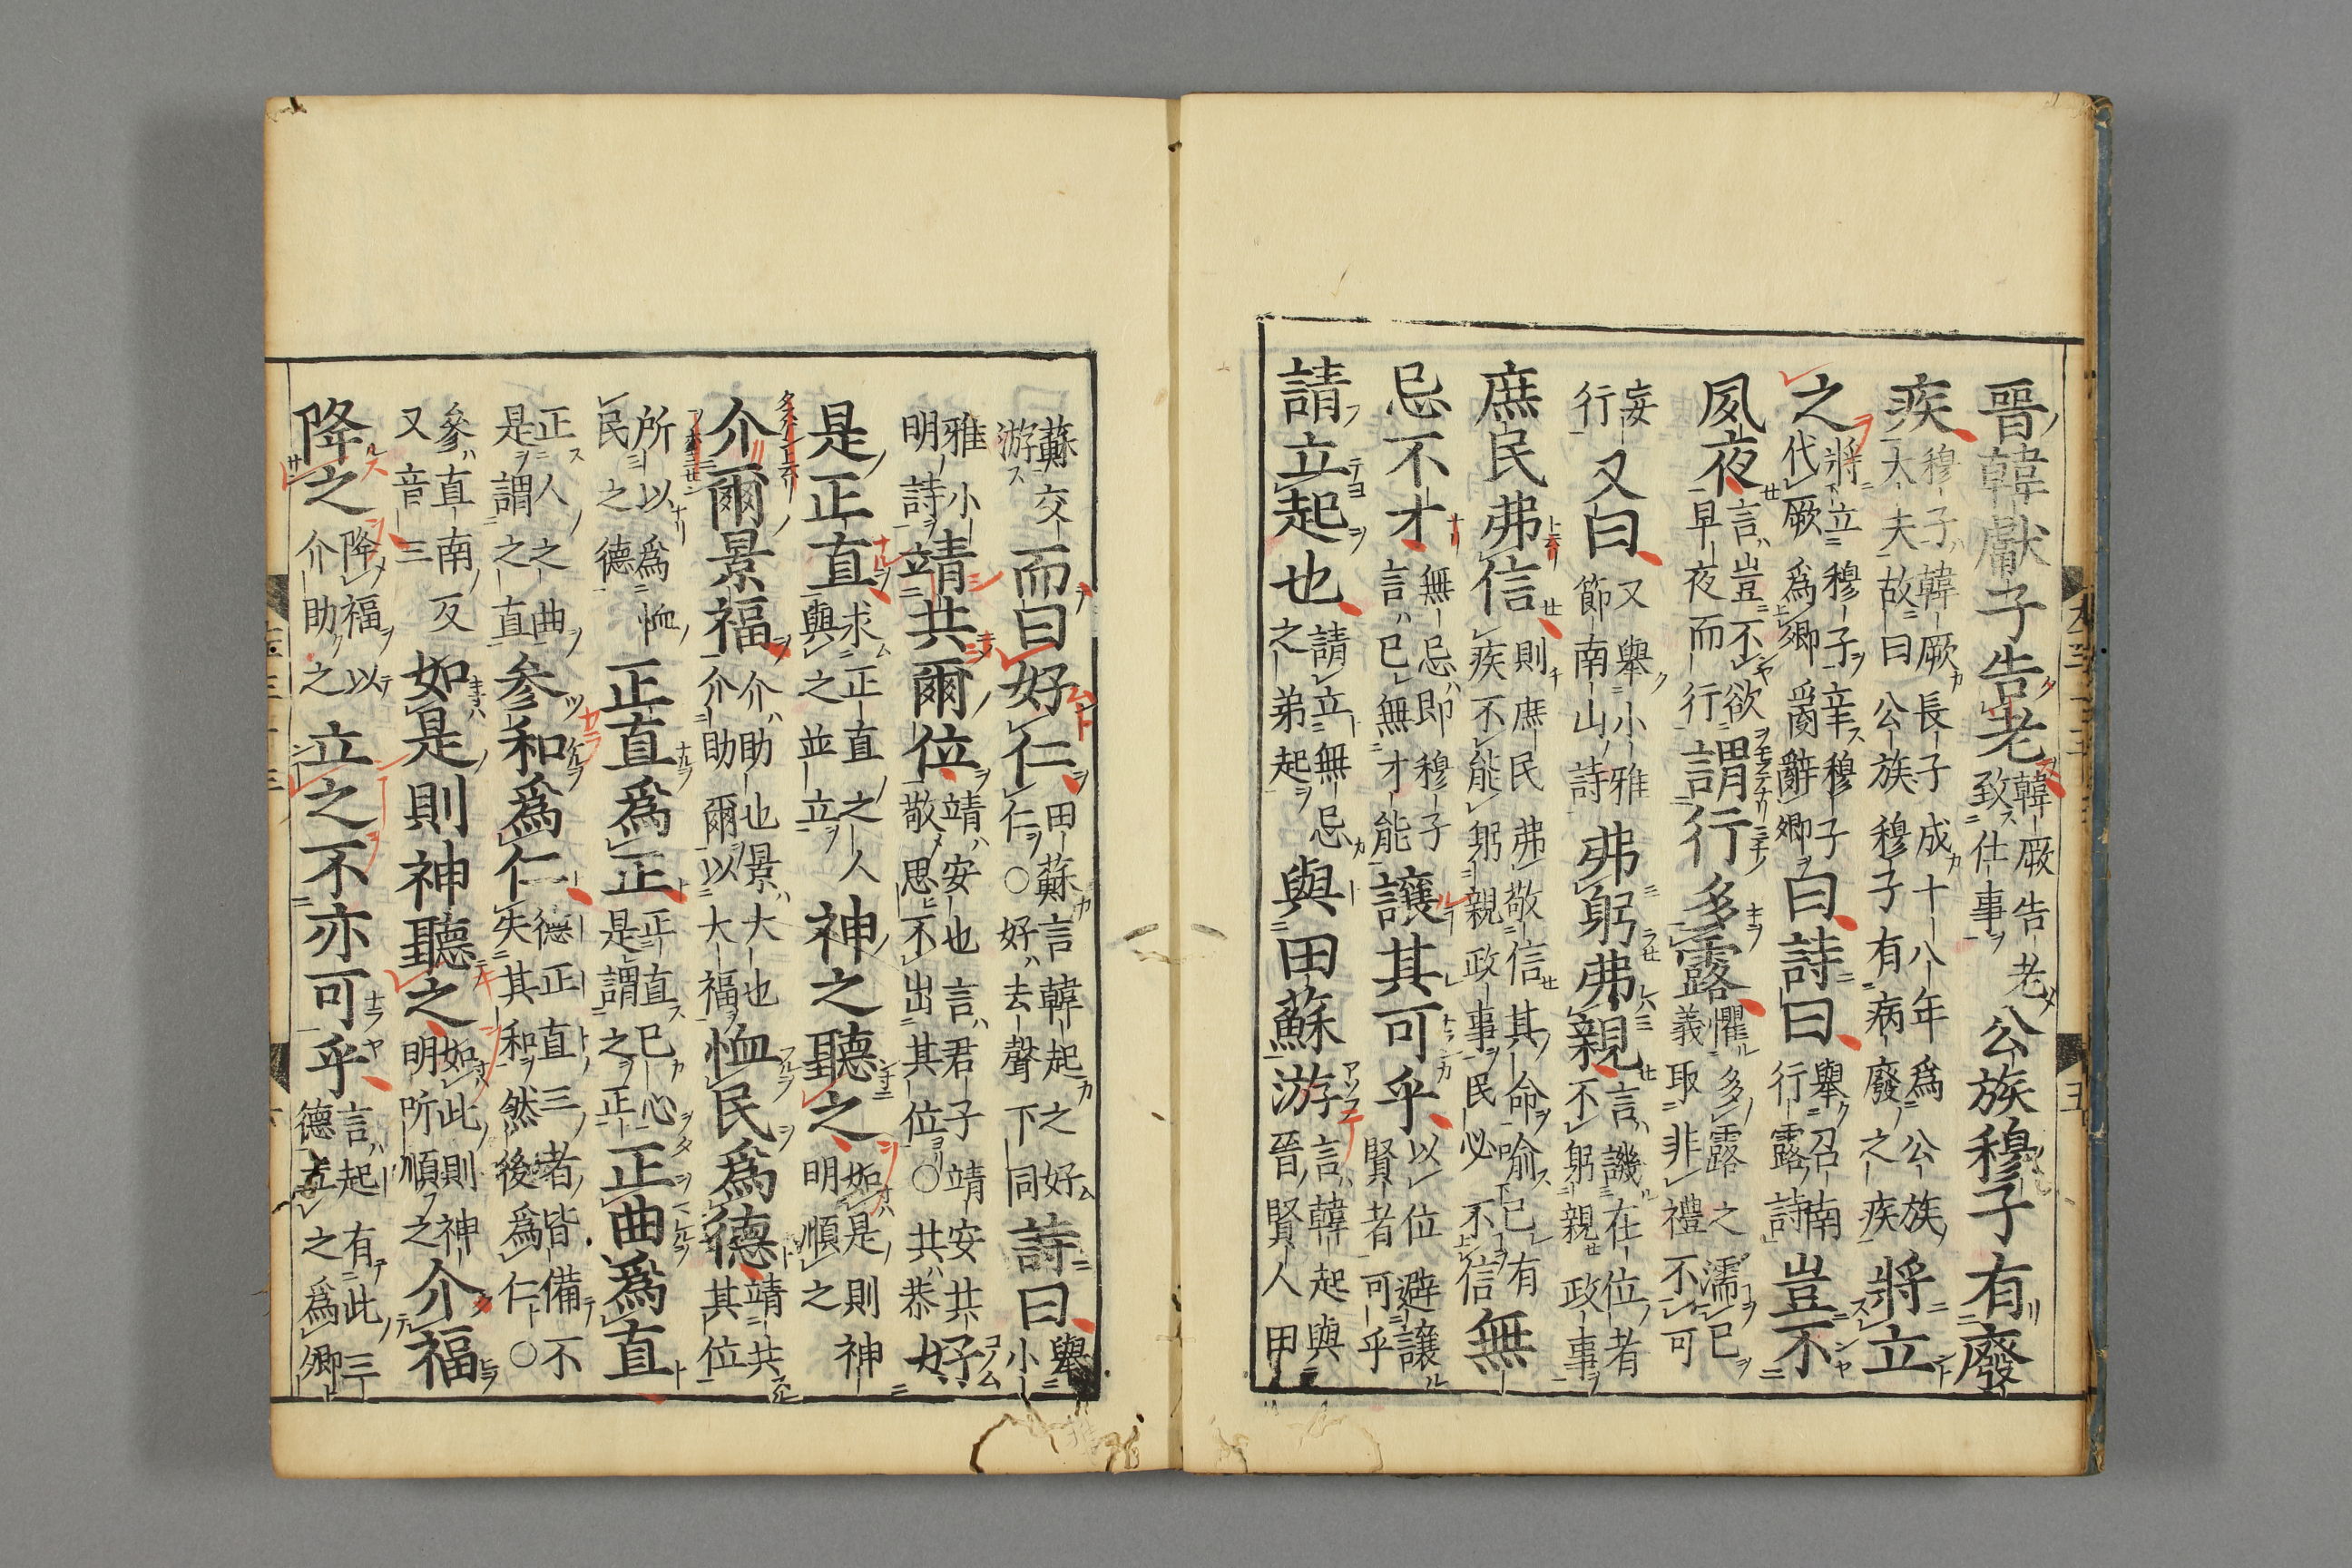 晉韓獻子告老韓厥告老致仕事公族穆子有廢
疾穆子韓厥長子成十八年爲公族大夫故曰公族穆子有病廢之疾將立
之將立穆子辛穆子代厥爲卿爵辭卿曰詩曰舉召南行露詩豈不
夙夜言豈不欲早夜而行謂行多露懼多露之濡已義取非禮不可
妄行又曰又舉小雅節南山詩弗躬弗親言譏在位者不躬親政事
庶民弗信則庶民弗敬信其命喻已有疾不能躬親政事民必不信無
忌不才無忌即穆子言已無才能讓其可乎以位避讓賢者可乎
請立起也請立無忌之弟起與田蘇游言韓起與晉賢人甲
蘇交游而曰好仁田蘇言韓起之好仁○好去聲下同詩曰舉小
雅小明詩靖共爾位靖安也言君子靖安共敬思不出其位○共恭好
是正直求正直之人與之並立神之聽之如是則神明順之
介爾景福介助也景大也介助爾以大福恤民爲德靖共其位
所以爲恤民之德正直爲正正直已心是謂之正正曲爲直
正人之曲是謂之直參和爲仁德正直三者皆備不失其和然後爲仁○
參直南反又音三如是則神聽之如此則神明所順之介福
降之降福以介助之立之不亦可乎言起有此三德立之爲卿